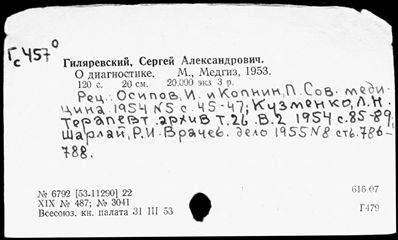 Гс 457⁰
Гиляревский, Сергей Александрович.
О диагностике. М., Медгиз, 1953.
120 с. 20 см. 20.000 экз 3 р.
Рец.: Осипов, И. и Копнин, П. Сов. меди-
цина. 1954 №5 с. 45-47; Кузменко, Л.Н.
Терапевт. архив т.26. В.2 1954 с.85-89;
Шарлай, Р.И. Врачев. дело 1955 №8 стб. 786-
788.
№ 6792 [53-11290] 22
XIX № 487; № 3041
Всесоюз. кн. палата 31 III 53
616.07
Г479